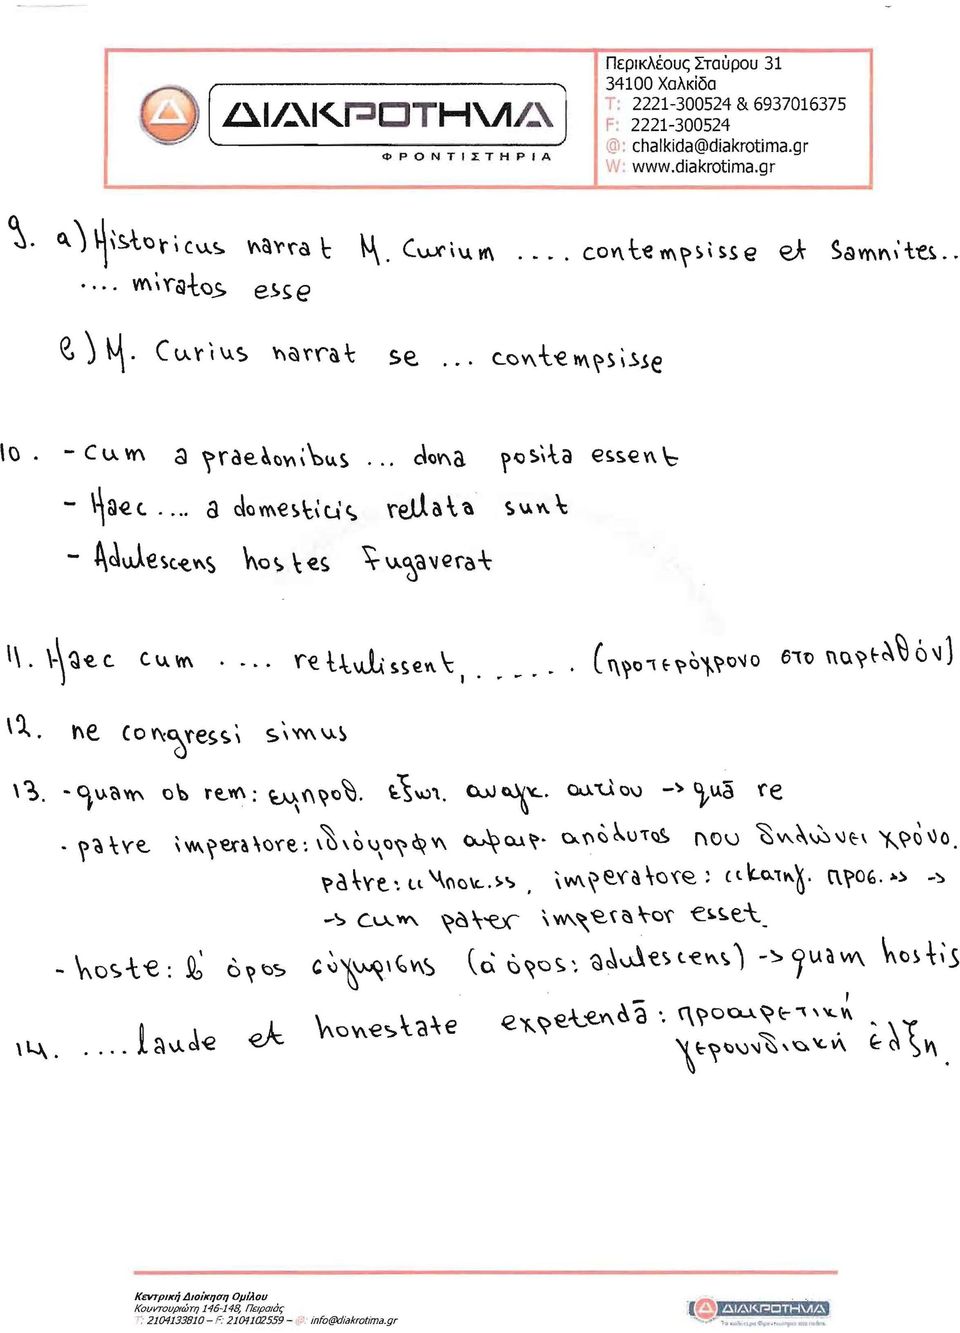 ΔΙΑΚΡΟΤΗΜΑ
ΦΡΟΝΤΙΣΤΗΡΙΑ
Περικλέους Σταύρου 31
34100 Χαλκίδα
T: 2221-300524 & 6937016375
F: 2221-300524
@: chalkida@diakrotima.gr
W: www.diakrotima.gr
9. α) Historicus narrat M. Curium .... contempsisse et Samnites..
.... miratos esse
β) M. Curius narrat se ... contempsisse
10. - Cum a praedonibus ... dona posita essent
- Haec .... a domesticis rellata sunt
- Adulescens hostes fugaverat
11. Haec cum .... rettulissent, ...... (προτερόχρονο στο παρελθόν)
12. ne congressi simus
13. - quam ob rem: εμπροθ. εξωτ. αναγκ. αιτίου -> quā re
- patre imperatore: ιδιόμορφη αφαιρ. απόλυτος που δηλώνει χρόνο.
patre: «Υποκ.», imperatore: «κατηγ. προσ.» ->
-> cum pater imperator esset.
- hoste: β' όρος σύγκρισης (α' όρος: adulescens) -> quam hostis
14. .... laude et honestate expetendā: προαιρετική
γερουνδιακή έλξη.
Κεντρική Διοίκηση Ομίλου
Κουντουριώτη 146-148, Πειραιάς
T: 2104133810 – F: 2104102559 – @: info@diakrotima.gr
ΔΙΑΚΡΟΤΗΜΑ